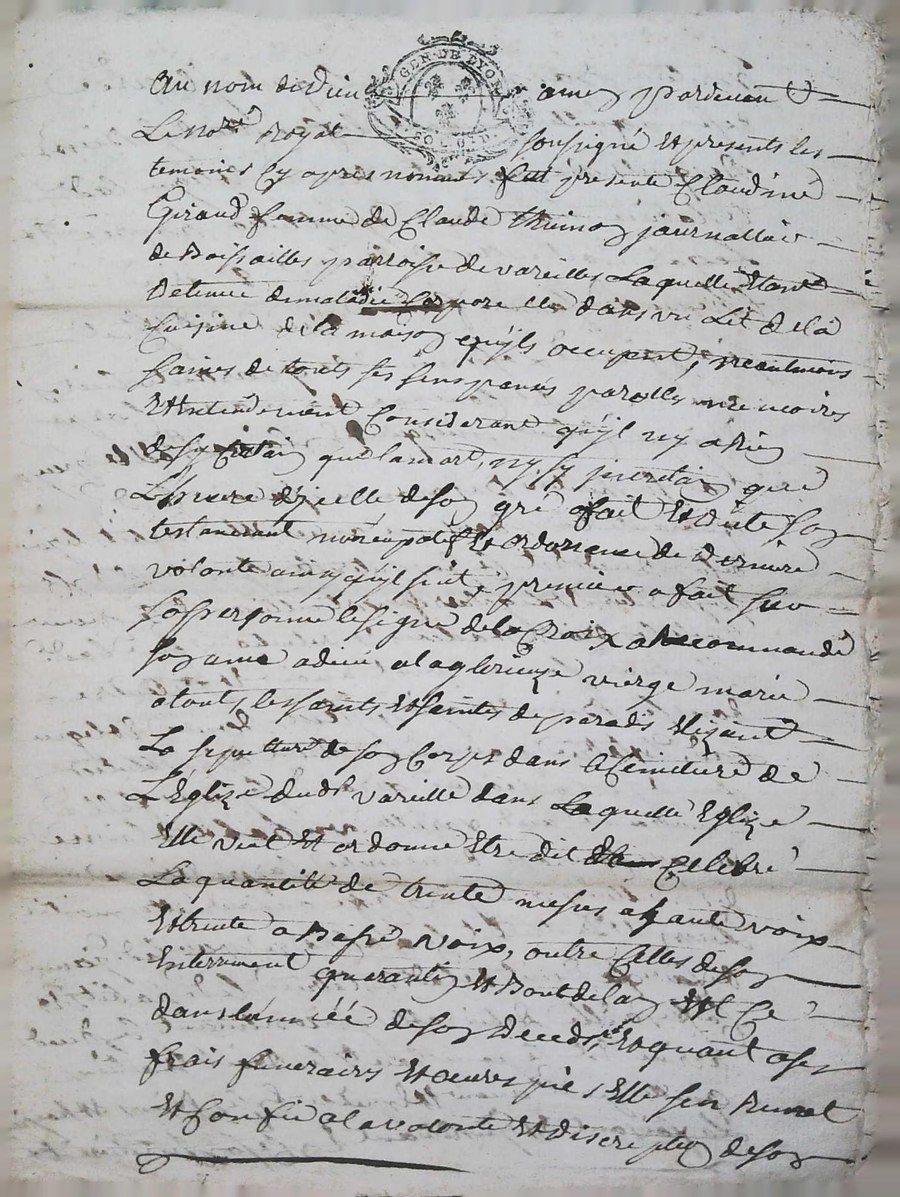 GEN. DE LYON
SOL
Au nom de Dieu amen pardevant
Le no.re royal soussigné Et presents les
temoins cy apres nommés fut presente Claudine
Giraud femme de Claude journallier
de Boissailles parroisse de vareilles Laquelle Etant
detenue de maladie Corporelle dans un Lit de la
Cuisine de la maison qu'ils occupent, neantmoins
saines de touts ses sens parolle memoires
Et Entendement Considerant qu'il ny a Rien
de sy Certain que la mort, ny sy incertain que
L'heure d'icelle de son gré a fait Et dicte son
testament noncupatif Et ordonnance de derniere
volonte ainsy qu'il suit, premier a fait sur
sa personne le signe de la Croix a Recommandé
son ame a dieu a la glorieuze vierge marie
a touts les saints Et saintes de paradis Elizant
La sepulture de son Corps dans le Cemitiere de
L'Eglize dudt vareille dans Laquelle Eglize
Elle veut Et ordonne Etre dit Celebré
La quantité de trente messes a haute voix
Et trente a Basse voix, outre Celles de son
Enterrement quarantin Et Bout de lan Et Ce
dans lannéé de son Deceds, Et quant a ses
frais funeraires Et oeuvres pies Elle sen Remet
Et Confie a la volonte Et discretion de son